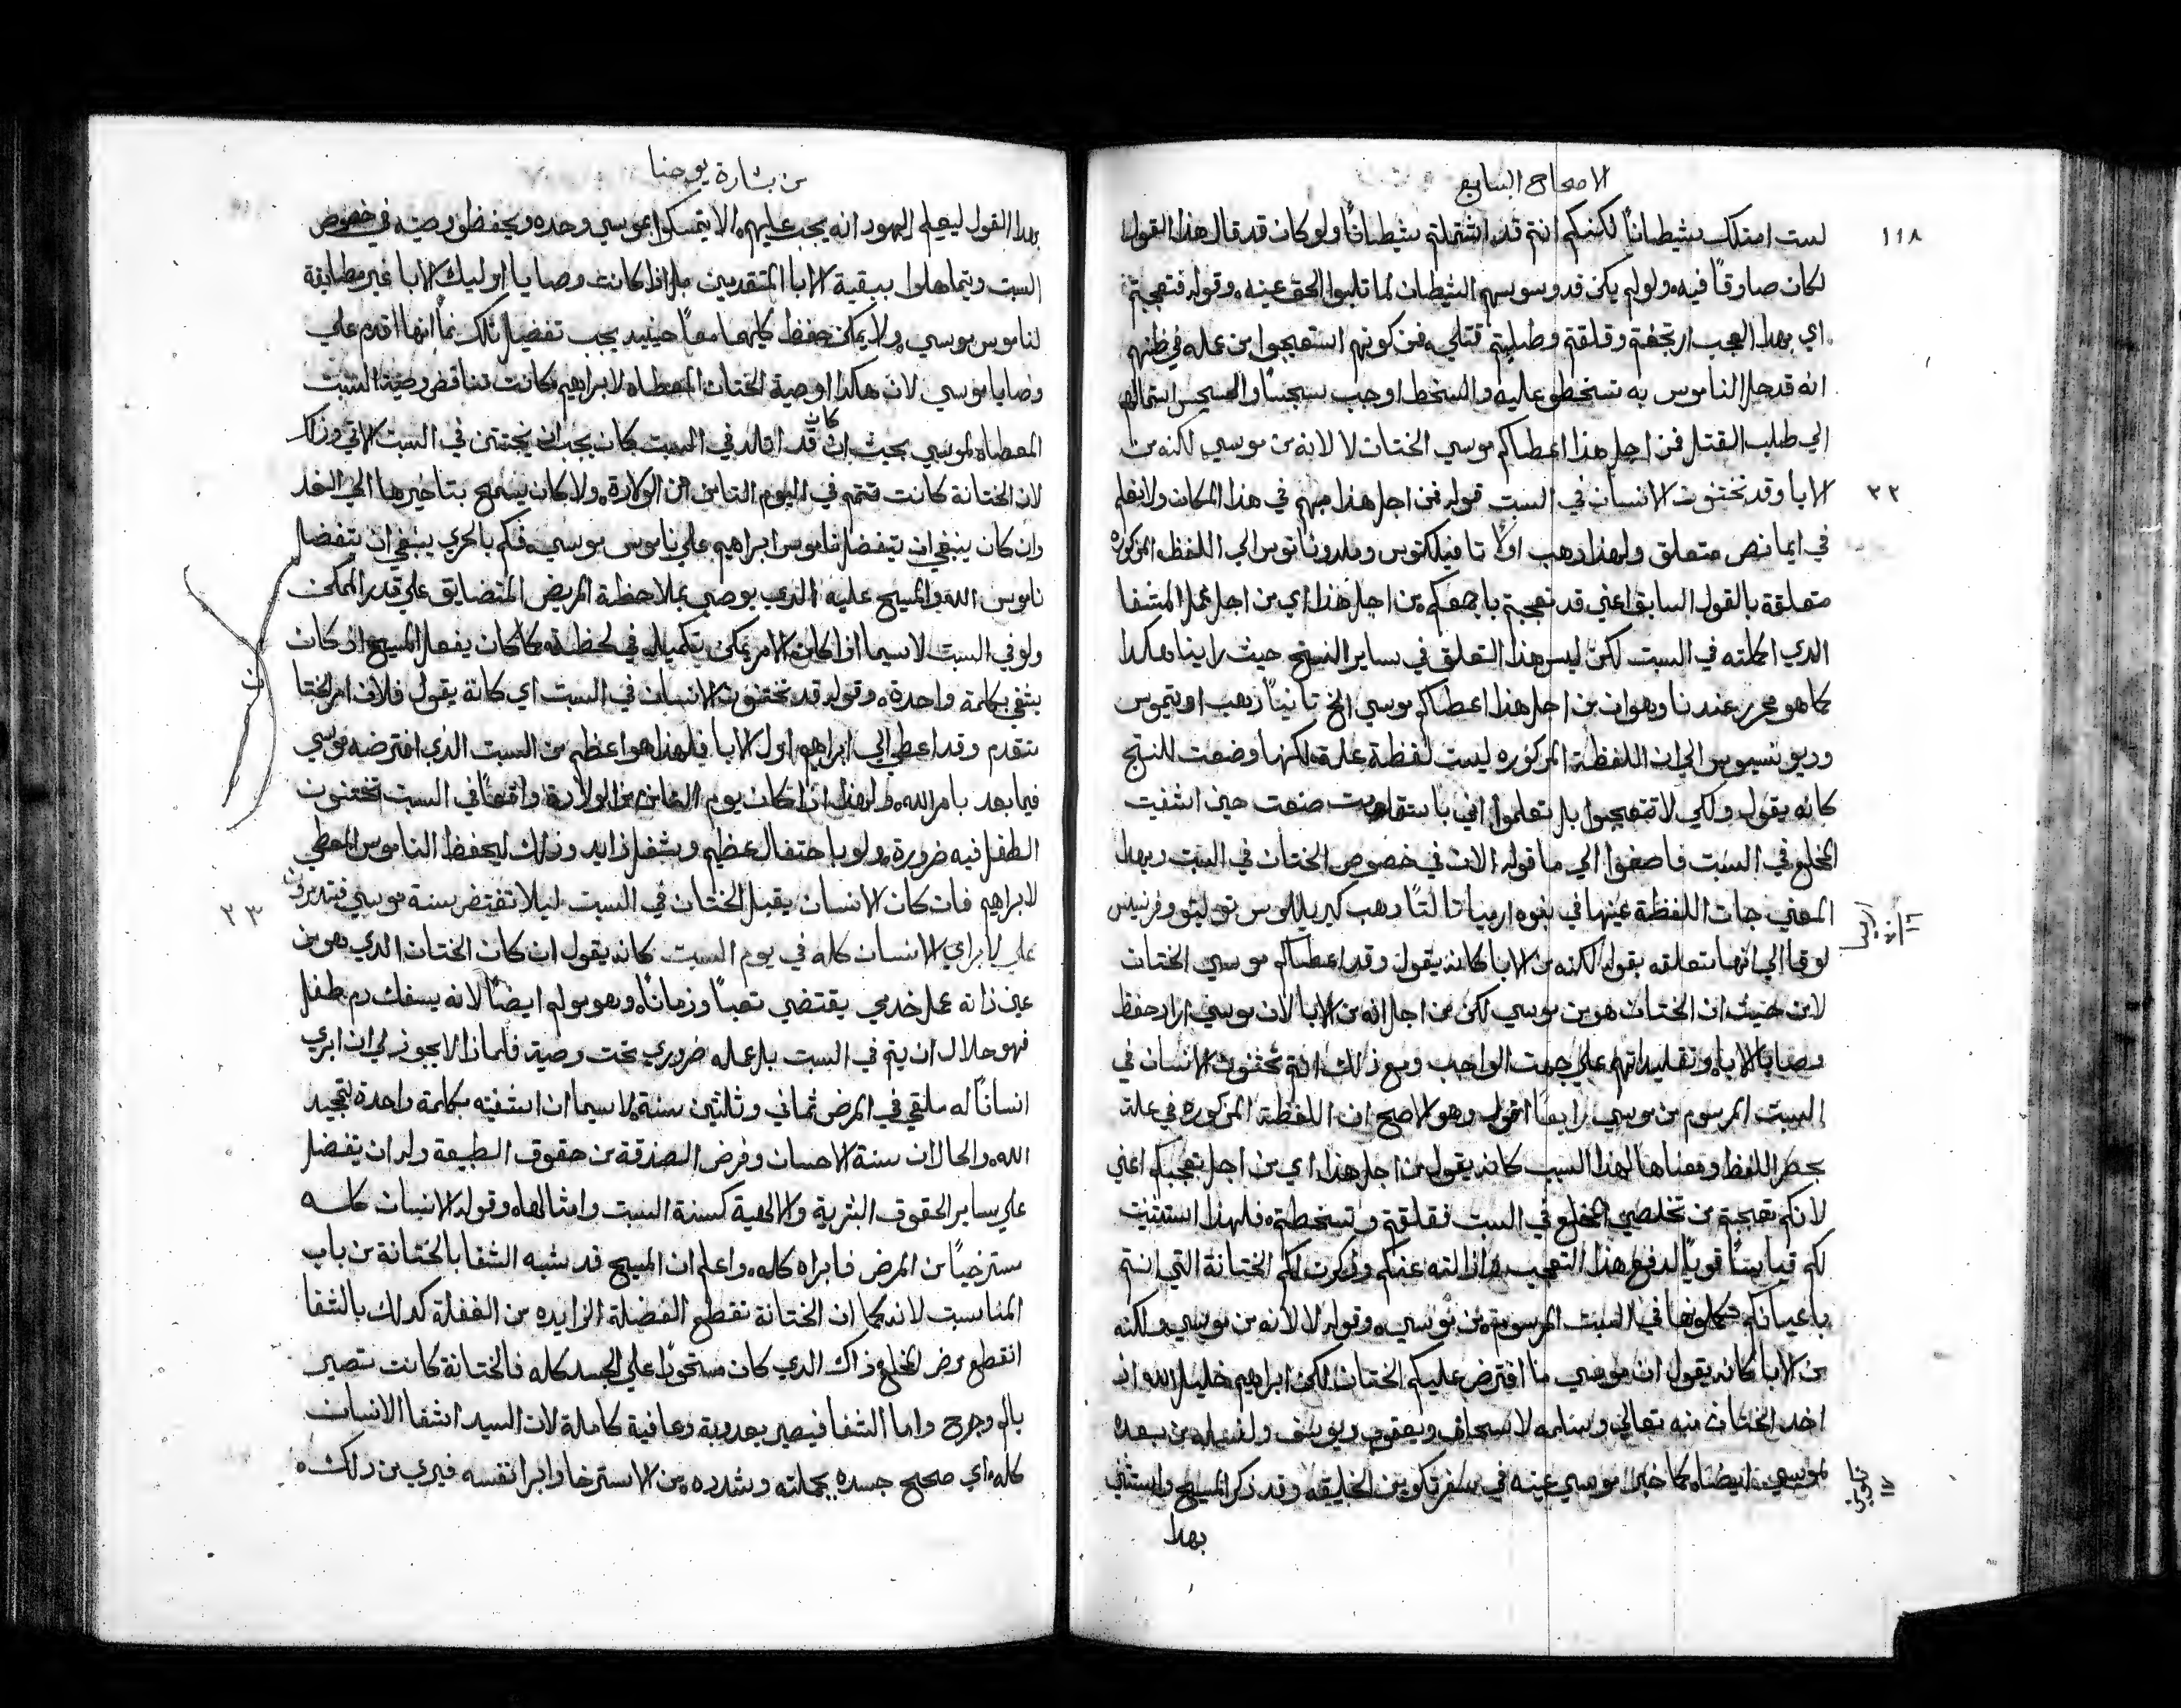 الاصحاح السابع
١١٨
لست امتلك شيطاناً لكنكم انتم قد اشتملتم شيطاناً ولو كان قد قال هذا القول
لكان صادقاً فيه ولو لم يكن قد وسوسهم الشيطان لما تلبوا الحق عينه وقوله فتعجبتم
اي بهدا العجب ارتجفتم وقلقتم وطلبتم قتلي فمن كونهم استعجبوا من عمله في ظنهم
انه قد حل الناموس به تسخطو عليه والسخط اوجب سجساً والسجس استمالهم
الي طلب القتل فمن اجل هذا اعطاكم موسي الختان لا لانه من موسي لكنه من
٢٢
الابا وقد تختنون الانسان في السبت قوله فمن اجل هذا مبهم في هذا المكان ولا يعلم
في ايما نص متعلق ولهذا ذهب اولاً تاوفيلكتوس وملدوناتوس الي اللفظه المذكوره
متعلقة بالقول السابق اعني قد تعجبتم باجمعكم من اجل هذا اي من اجل عمل الشفا
الدي اكملته في السبت لكن ليس هذا التعلق في ساير النسخ حيث راينا هكدا
كما هو محرر عندنا وهو ان من اجل هذا اعطاكم موسي الخ تانيناً ذهب اوتيموس
وديونسيوس الي ان اللفظة المذكوره ليست لفظة علة لكنها وضعت للنتج
كانه يقول ولكي لا تتعجبوا بل تعلموا اني باستقامت صنعت حين اشفيت
المخلع في السبت فاصغوا الي ما قوله الان في خصوص الختان في السبت وبهدا
المعني جات اللفظة عينها في نبوه ارميا تالتاً ذهب كيريللوس توليتو وفرنسيس
لوقا الي انها متعلقه بقوله لكنه من الابا كانه يقول وقد اعطاكم موسي الختان
لا من حيث ان الختان هو من موسي لكن من اجل انه من الابا لان موسي اراد حفظ
وصايا الابا وتقليداتهم علي جهت الواجب ومع ذلك انتم تختنون الانسان في
السبت المرسوم من موسي رابعاً اقول وهو الاصح ان اللفظة المذكوره في علة
بحسب اللفظ ومعناها لهذا السبب كانه يقول من اجل هذا اي من اجل تعجبكم اعني
لانكم تعجبتم من تخلصي المخلع في السبت فقلقتم وتسخطتم فلهذا استثنيت
لكم قياساً قوياً لدفع هذا التعجب وازالته عنكم وذكرت لكم الختانة التي انتم
باعيانكم تكملونها في السبت المرسومة من موسي وقوله لا لانه من موسي ولكنه
من الابا كانه يقول ان موسي ما افترض عليكم الختان لكن ابراهيم خليل الله اد
اخد الختان منه تعالي وسلمه لاسحاق ويعقوب ويوسف ولنسله من بعده
لموسي ايضاً كما خبر موسي عينه في سفر تكوين الخليقه وقد ذكر المسيح واستثني
تكوين ١٧
بهدا
من بشارة يوحنا
بهدا القول ليعلم اليهود انه يجب عليهم الا يتمسكوا بموسي وحده ويحفظو وصيته في خصوص
السبت ويتماهلوا ببقية الابا المتقدمين بل اذا كانت وصايا اوليك الابا غير مطابقة
لناموس موسي ولا يمكن حفظ كليهما معاً حينيد يجب تفضيل تلك بما انها اقدم علي
وصايا موسي لان هكدا وصية الختان المعطاه لابراهيم كانت تناقض وصية السبت
المعطاه لموسي بحيث ان كان قد اولد في السبت كان يجب ان يختتن في السبت الاتي وذلك
لان الختانة كانت تتم في اليوم التامن من الولادة ولا كان يسمح بتاخيرها الي الغد
وان كان ينبغي ان يتفضل ناموس ابراهيم علي ناموس موسي فكم بالحري ينبغي ان يتفضل
ناموس الله والمسيح عليه الدي يوصي بملاحظة المريض المتضايق علي قدر الممكن
ولو في السبت لاسيما اذا كان الامر يمكن تكميله في لحظة كما كان يفعل المسيح اذ كان
يشفي بكلمة واحدة وقوله قد تختنون الانسان في السبت اي كانه يقول فلان امر الختان
تقدم وقد اعطي الي ابراهيم اول الابا فلهذا هو اعظم من السبت الذي افترضه موسي
فيما بعد بامر الله ولهذا اذا كان يوم التامن من الولادة واقعاً في السبت تختنون
الطفل فيه ضرورة ولو باحتفال عظيم وبشغل زايد وذلك ليحفظ الناموس المعطي
لابراهيم فان كان الانسان يقبل الختان في السبت ليلا تنتقض سنة موسي فتتدمرون
٢٣
علي لابراي الانسان كله في يوم السبت كانه يقول ان كان الختان الدي هو من
عين ذاته عمل خدمي يقتضي تعباً وزماناً وهو مولم ايضاً لانه يسفك دم طفل
فهو حلال ان يتم في السبت بل عمله ضروري تحت وصية فلماذا لا يجوز لي ان ابري
انساناً له ملقي في المرض ثماني وثلثين سنة لاسيما ان اشفيته بكلمة واحدة لتمجيد
الله والحال ان سنة الاحسان وفرض الصدقة من حقوق الطبيعة وله ان يتفضل
علي ساير الحقوق البشرية والالهية كسنة السبت وامثالها وقوله الانسان كله
مسترخياً من المرض فابراه كله واعلم ان المسيح قد شبه الشفا بالختانة من باب
المناسبت لانه كما ان الختانة تقطع الفضلة الزايده من الغفلة كدلك بالشفا
انقطع مرض المخلع ذاك الدي كان مستحوداً علي الجسد كله فالختانة كانت تصير
بالم وجرح واما الشفا فيصير بعدوبة وعافية كاملة لان السيد اشفا الانسان
كله اي صحيح جسده بجملته وشدده من الاسترخا وابرا نفسه فيري من ذلك